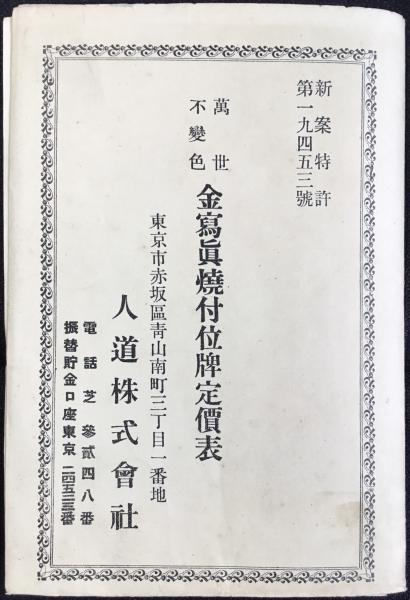 新案特許
第一九四五三號
萬世
不變色
金寫眞燒付位牌定價表
東京市赤坂區靑山南町三丁目一番地
人道株式會社
電話芝參貳四八番
振替貯金口座東京二四五三三番